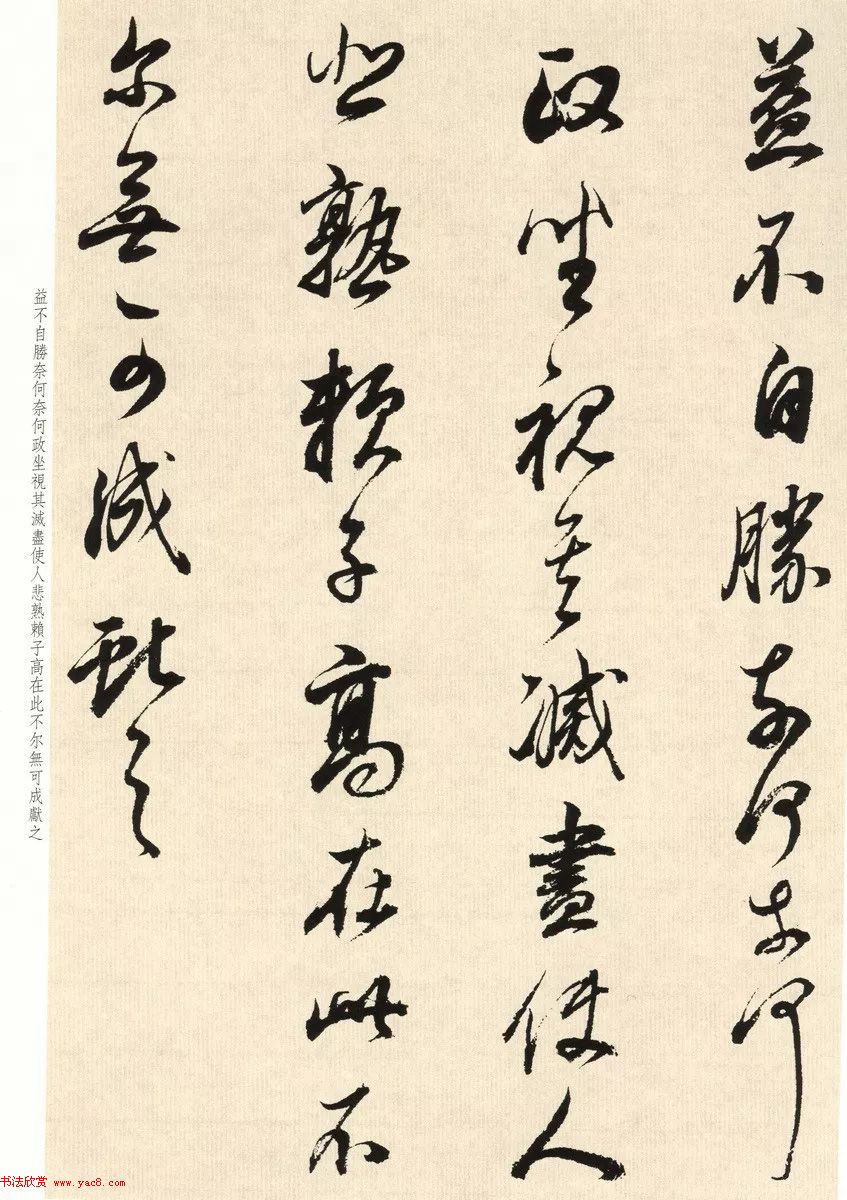 益不自勝奈何奈何
政坐視其滅盡使人
悲熟賴子高在此不
尔無可成獻之
益不自勝奈何奈何政坐視其滅盡使人悲熟賴子高在此不尔無可成獻之
书法欣赏
www.yac8.com